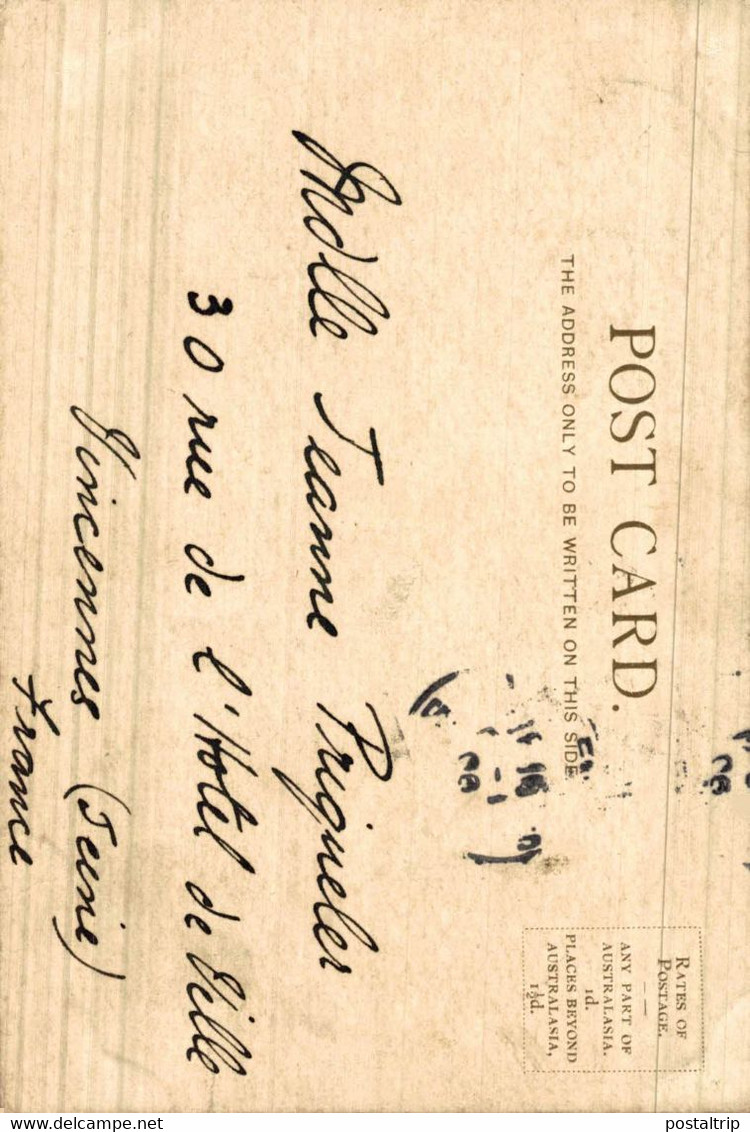 POST CARD.
THE ADDRESS ONLY TO BE WRITTEN ON THIS SIDE
RATES OF
POSTAGE.
ANY PART OF
AUSTRALASIA.
1d.
PLACES BEYOND
AUSTRALASIA,
1½d.
Mdlle Jeanne Prigneler
30 rue de l'Hotel de Ville
Vincennes (Seine)
France
www.delcampe.net
postaltrip